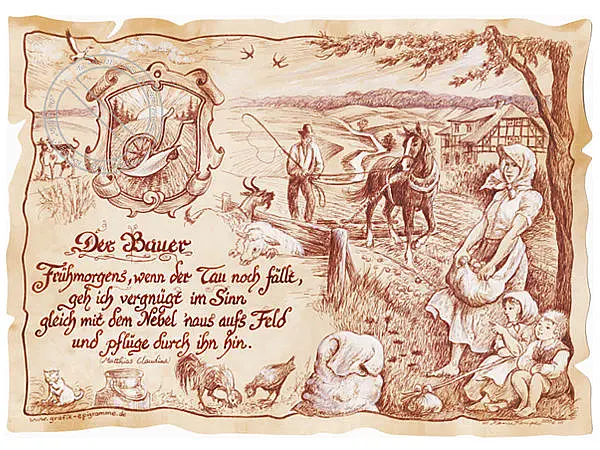 Der Bauer
Frühmorgens, wenn der Tau noch fällt,
geh ich vergnügt im Sinn
gleich mit dem Nebel 'naus aufs Feld
und pflüge durch ihn hin.
Matthias Claudius
www.grafik-epigramme.de